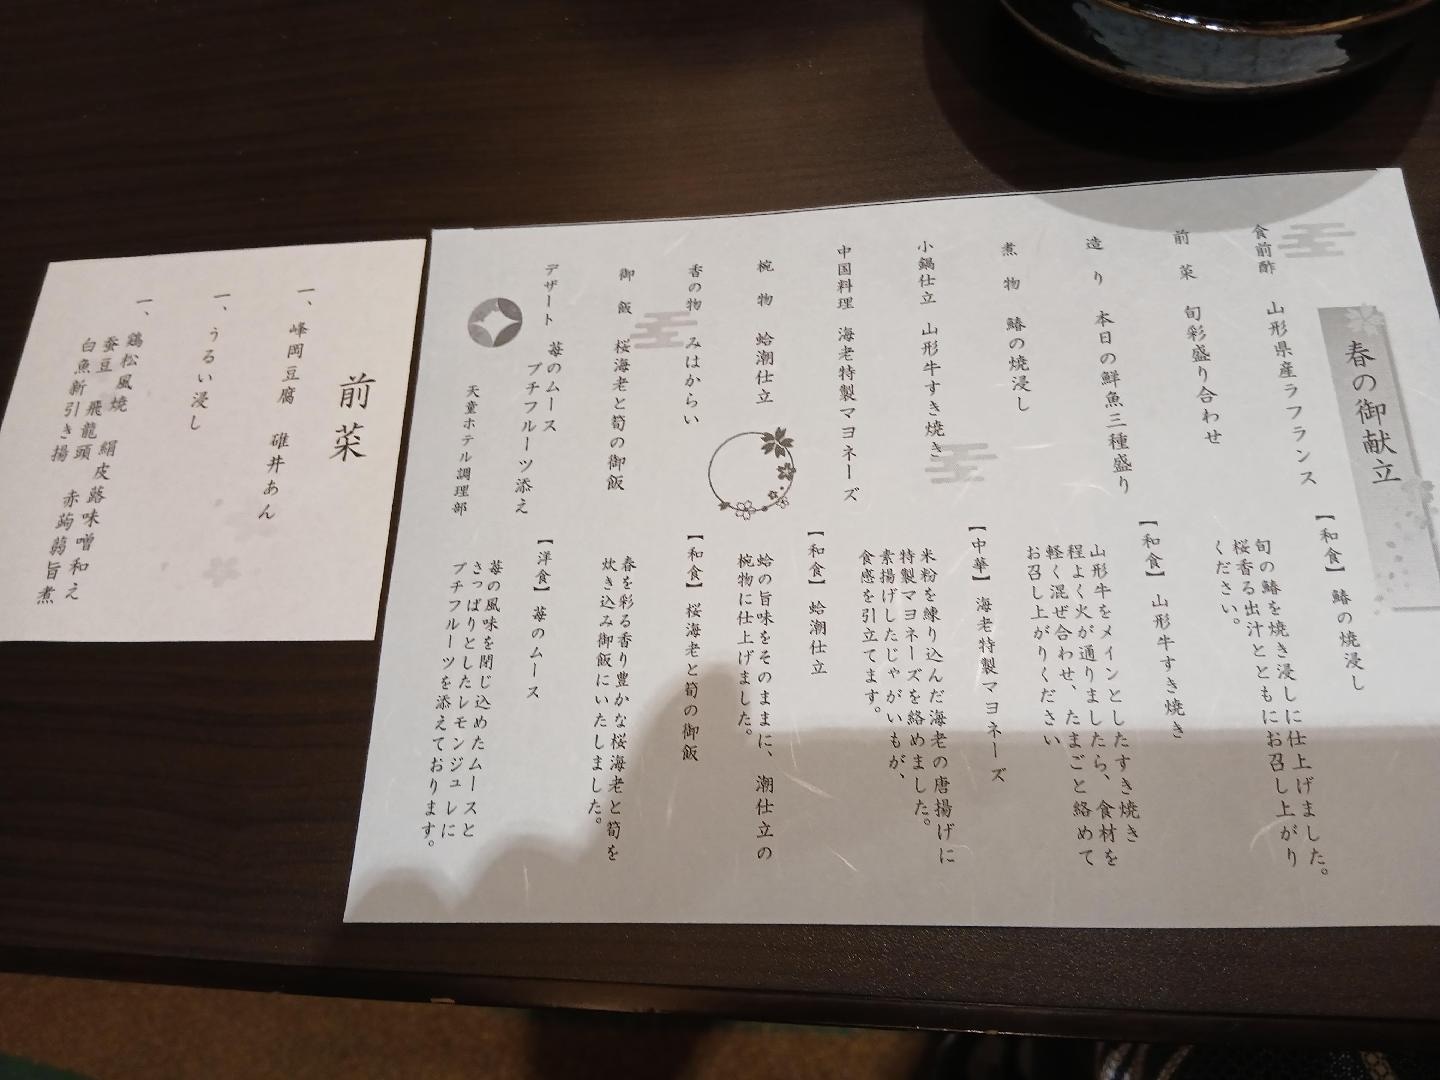 春の御献立
食前酢 山形県産ラフランス
前菜 旬彩盛り合わせ
造り 本日の鮮魚三種盛り
煮物 鰆の焼浸し
小鍋仕立 山形牛すき焼き
中国料理 海老特製マヨネーズ
椀物 蛤潮仕立
香の物 みはからい
御飯 桜海老と筍の御飯
デザート 苺のムース
プチフルーツ添え
天童ホテル調理部
【和食】 鰆の焼浸し
旬の鰆を焼き浸しに仕上げました。
桜香る出汁とともにお召し上がり
ください。
【和食】 山形牛すき焼き
山形牛をメインとしたすき焼き
程よく火が通りましたら、食材を
軽く混ぜ合わせ、たまごと絡めて
お召し上がりください
【中華】 海老特製マヨネーズ
米粉を練り込んだ海老の唐揚げに
特製マヨネーズを絡めました。
素揚げしたじゃがいもが、
食感を引立てます。
【和食】 蛤潮仕立
蛤の旨味をそのままに、潮仕立の
椀物に仕上げました。
【和食】 桜海老と筍の御飯
春を彩る香り豊かな桜海老と筍を
炊き込み御飯にいたしました。
【洋食】 苺のムース
苺の風味を閉じ込めたムースと
さっぱりとしたレモンジュレに
プチフルーツを添えております。
前菜
一、峰岡豆腐 碓井あん
一、うるい浸し
一、鶏松風焼 絹皮蕗味噌和え
蚕豆 飛龍頭 赤蒟蒻旨煮
白魚新引き揚